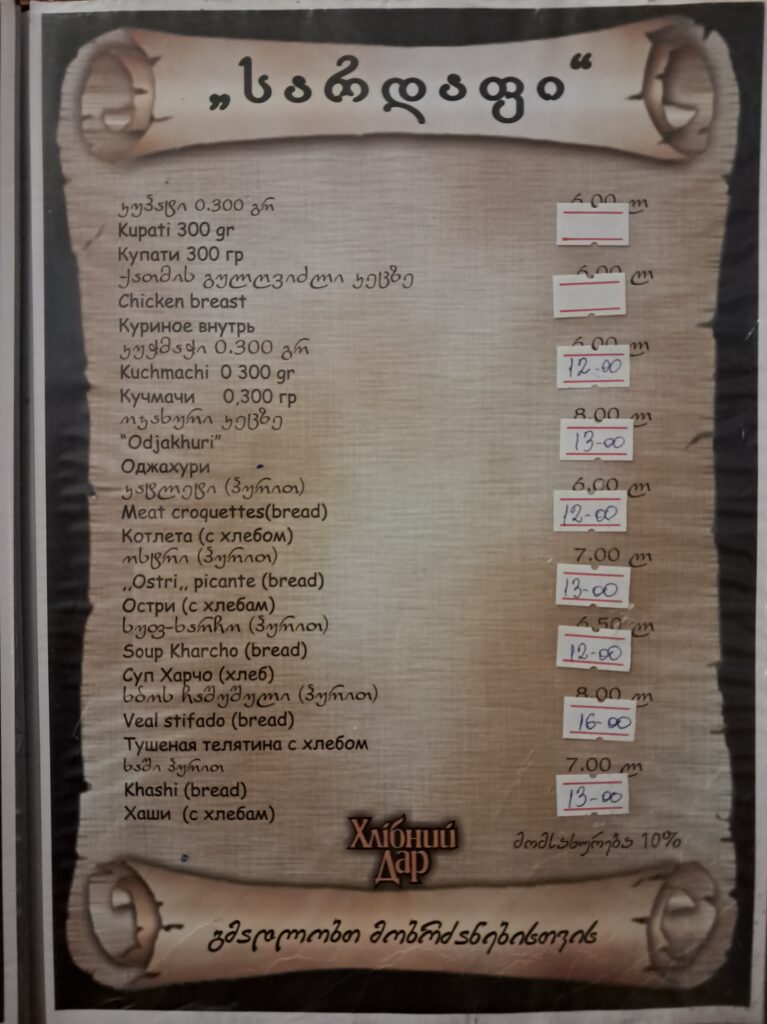 „სარდაფი“
კუპატი 0.300 გრ 6.00 ლ
Kupati 300 gr
Купати 300 гр
ქათმის გულღვიძლი კეცზე 6.00 ლ
Chicken breast
Куриное внутрь
კუჭმაჭი 0.300 გრ 6.00 ლ
Kuchmachi 0 300 gr 12-00
Кучмачи 0,300 гр
ოჯახური კეცზე 8.00 ლ
“Odjakhuri” 13-00
Оджахури
კატლეტი (პურით) 6.00 ლ
Meat croquettes(bread) 12-00
Котлета (с хлебом)
ოსტრი (პურით) 7.00 ლ
,,Ostri,, picante (bread) 13-00
Остри (с хлебам)
სუფ-ხარჩო (პურით) 6.50 ლ
Soup Kharcho (bread) 12-00
Суп Харчо (хлеб)
ხბოს ჩაშუშული (პურით) 8.00 ლ
Veal stifado (bread) 16-00
Тушеная телятина с хлебом
ხაში პურით 7.00 ლ
Khashi (bread) 13-00
Хаши (с хлебам)
Хлібний
Дар
მომსახურება 10%
გმადლობთ მობრძანებისთვის